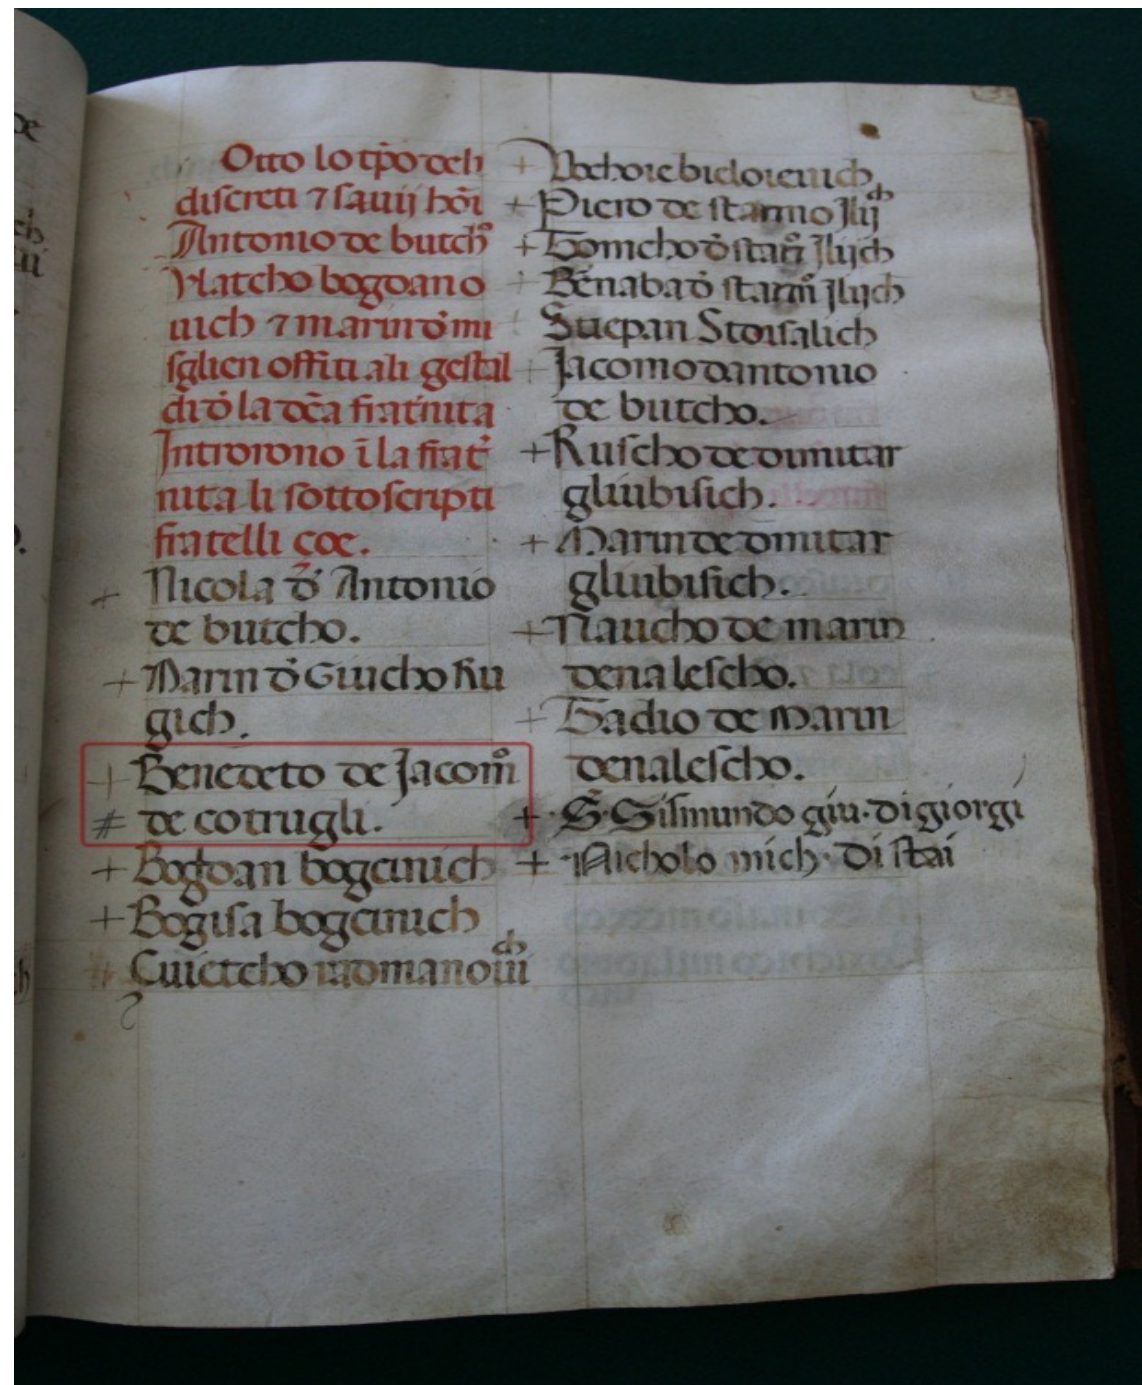 Otto lo tp̄o deli
discreti ⁊ sauij hoī
Antonio de butcho
Vlatcho bogdano
uich ⁊ marin d̄ mi
sglien offitiali gestal
di d̄ la dc̄a fratnita
Introrono ī la frat
nita li sottoscripti
fratelli çoe.
+ Nicola d̄ Antonio
de butcho.
+ Marin d̄ Giucho Ru
gich.
+ Benedeto de Jacom̊
# de cotrugli.
+ Bogdan bogcinich
+ Bogisa bogcinich
# Cuietcho radmanouich
+ bieloieuich
+ Piero de starmo Ilijch
+ Tomcho d̄ star̊ Ilijch
+ Benaba d̄ starm̊ Ilijch
+ Stiepan Stoisalich
+ Jacomo dantonio
de butcho.
+ Ruscho de dimitar
gliubisich.
+ Marin de dimitar
gliubisich.
+ Naucho de marin
denalescho.
+ Radio de marin
denalescho.
+ S. Sismundo giu. di giorgi
+ Nicholo mich. di stai